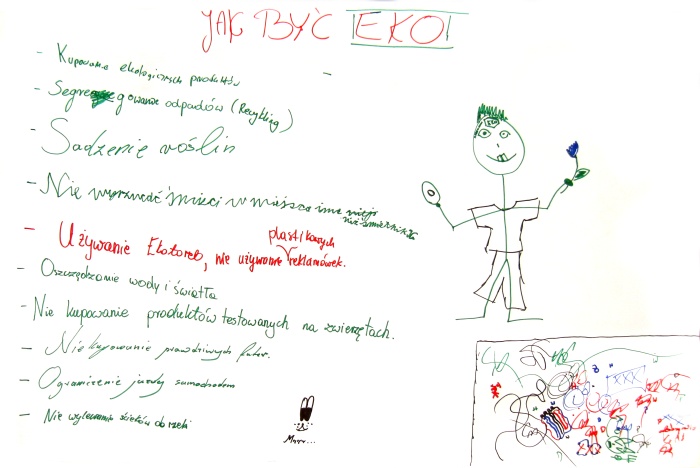 JAK BYĆ EKO
- Kupowanie ekologicznych produktów
- Segregowanie odpadów (Recykling)
- Sadzenie roślin
- Nie wyrzucać śmieci w miejsca inne niż śmietniki
- Używanie Ekotoreb, nie używanie plastikowych reklamówek.
- Oszczędzanie wody i światła
- Nie kupowanie produktów testowanych na zwierzętach.
- Nie kupowanie prawdziwych futer.
- Ograniczenie jazdy samochodem
- Nie wylewanie ścieków do rzeki
Mrrr...
XXX